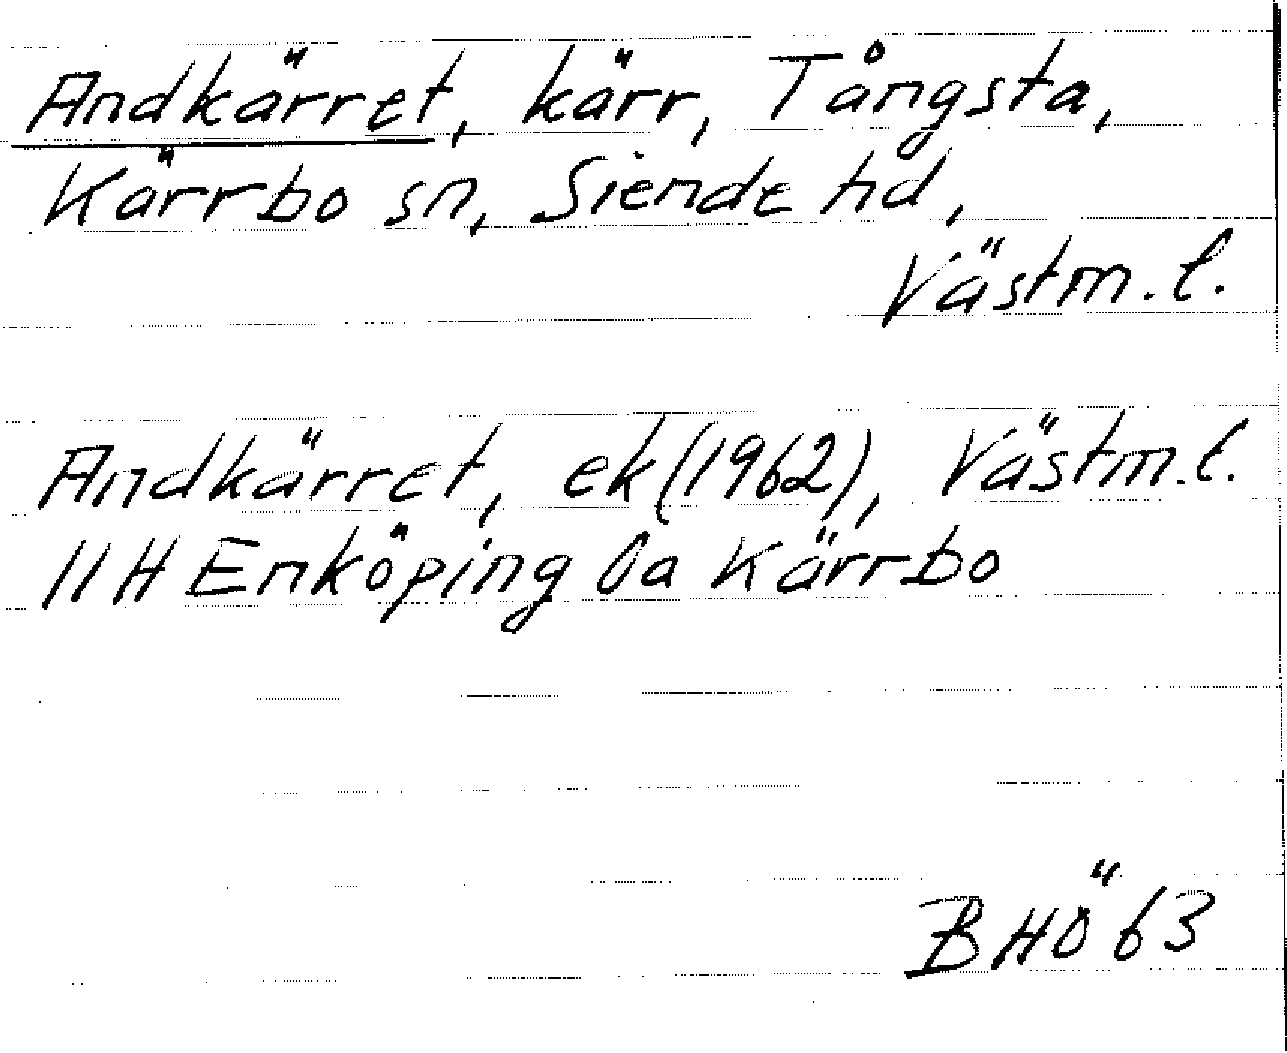 Andkärret, kärr, Tångsta,
Kärrbo sn, Siende hd,
Västm.l.
Andkärret, ek(1962), Västm.l.
11H Enköping 0a Kärrbo
BHÖ 63